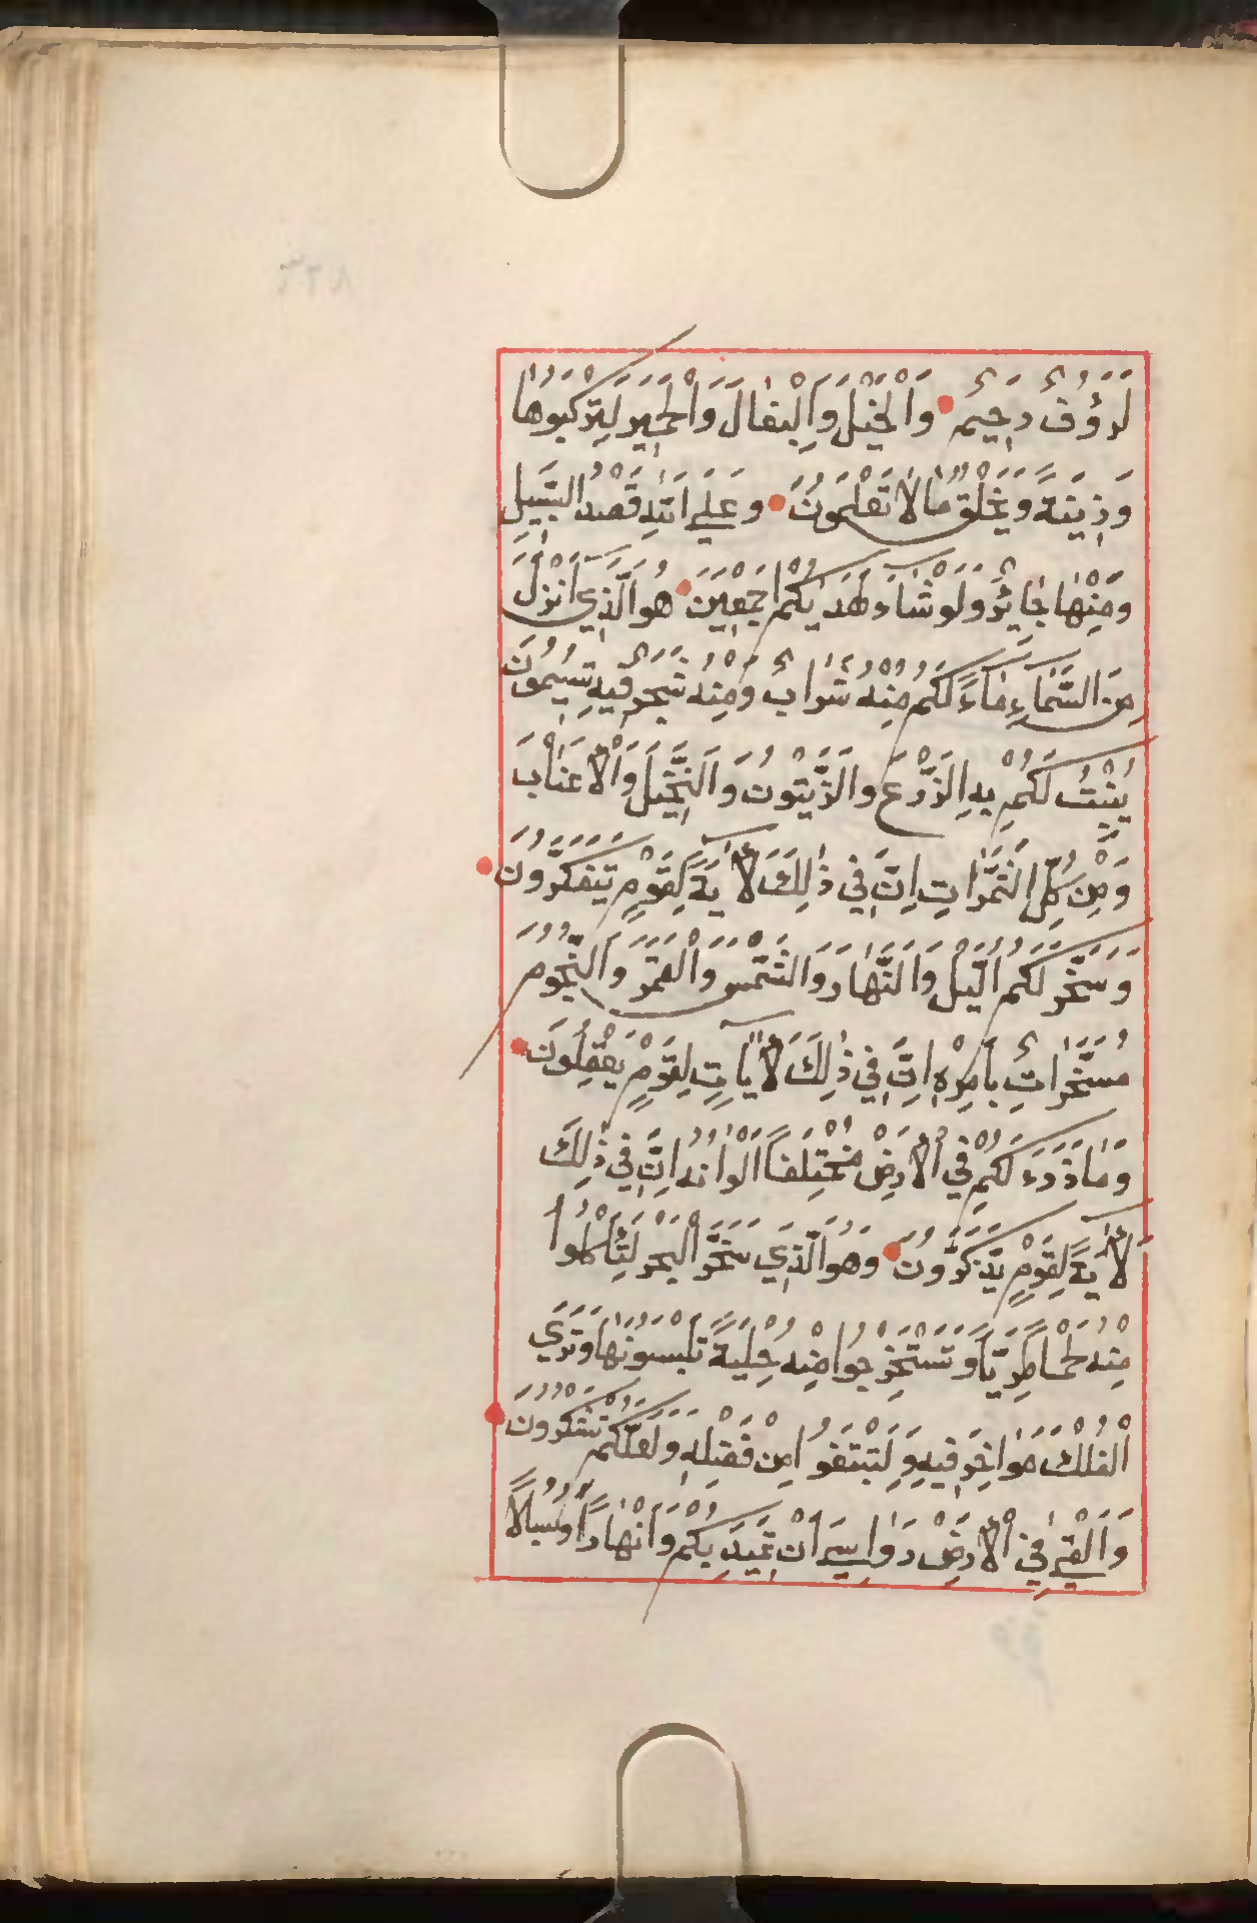 لَرَؤُفٌ رَحِيمٌ وَالْخَيْلَ وَالْبِغَالَ وَالْحَمِيرَ لِتَرْكَبُوهَا
وَزِينَةً وَيَخْلُقُ مَا لَا تَعْلَمُونَ وَعَلَى اللّٰهِ قَصْدُ السَّبِيلِ
وَمِنْهَا جَائِرٌ وَلَوْ شَاءَ لَهَدٰيكُمْ اَجْمَعِينَ هُوَ الَّذِي اَنْزَلَ
مِنَ السَّمَاءِ مَاءً لَكُمْ مِنْهُ شَرَابٌ وَمِنْهُ شَجَرٌ فِيهِ تُسِيمُونَ
يُنْبِتُ لَكُمْ بِهِ الزَّرْعَ وَالزَّيْتُونَ وَالنَّخِيلَ وَالْأَعْنَابَ
وَمِنْ كُلِّ الثَّمَرَاتِ اِنَّ فِي ذٰلِكَ لَأٰيَةً لِقَوْمٍ يَتَفَكَّرُونَ
وَسَخَّرَ لَكُمُ الَّيْلَ وَالنَّهَارَ وَالشَّمْسَ وَالْقَمَرَ وَالنُّجُومُ
مُسَخَّرَاتٌ بِاَمْرِهِ اِنَّ فِي ذٰلِكَ لَأٰيَاتٍ لِقَوْمٍ يَعْقِلُونَ
وَمَا ذَرَءَ لَكُمْ فِي الْأَرْضِ مُخْتَلِفًا اَلْوَانُهُ اِنَّ فِي ذٰلِكَ
لَأٰيَةً لِقَوْمٍ يَذَّكَّرُونَ وَهُوَ الَّذِي سَخَّرَ الْبَحْرَ لِتَأْكُلُوا
مِنْهُ لَحْمًا طَرِيًّا وَتَسْتَخْرِجُوا مِنْهُ حِلْيَةً تَلْبَسُونَهَا وَتَرَى
الْفُلْكَ مَوَاخِرَ فِيهِ وَلِتَبْتَغُوا مِنْ فَضْلِهِ وَلَعَلَّكُمْ تَشْكُرُونَ
وَاَلْقٰى فِي الْأَرْضِ رَوَاسِيَ اَنْ تَمِيدَ بِكُمْ وَاَنْهَارًا وَسُبُلًا